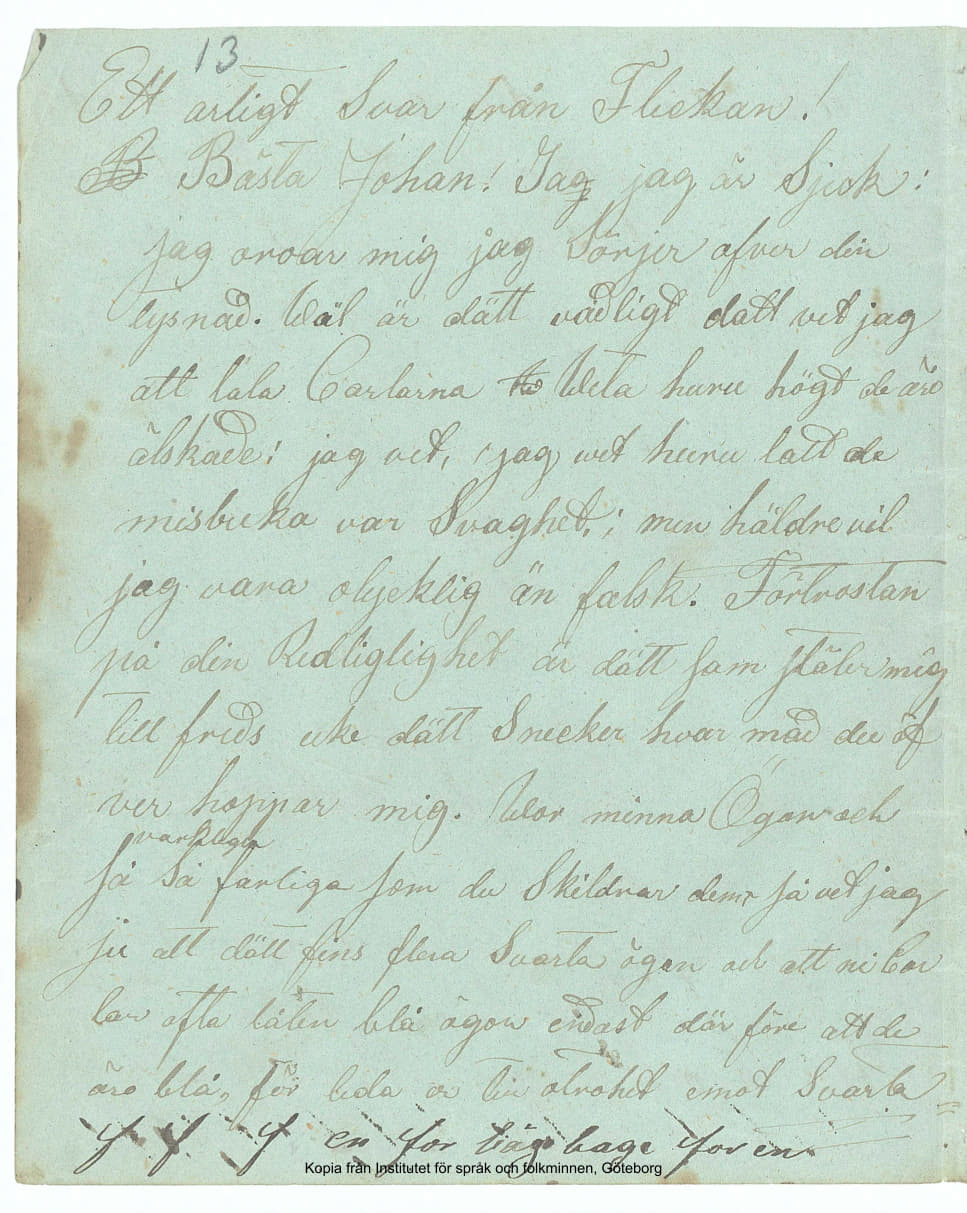 13
Ett arligt Svar från Flickan!
B Bästa Johan! Jag jag är Sjuk:
jag oroar mig jag Sörjer öfver din
tysnad. Wäl är dätt vådligt datt vet jag
att låla Carlarna to Weta huru högt de äro
älskade; jag vet, jag wet huru latt de
misbuka vår Svaghet; men häldre vil
jag vara olycklig än falsk. Förtrostan
på din Redliglighet är dätt som stäler mig
till freds icke dätt Snecker hvar måd du öf
ver hoppar mig. Wor minna Ögon och
varkliga
så så farliga som du Skildrar dem, så vet jag
ju att dätt fins flera Svarta ögon och att ni Car
lar ofta låten blå ögon endast där före att de
äro blå, för leda er till otrohet emot Svarta
f f f en for bäg bage for en
Kopia från Institutet för språk och folkminnen, Göteborg